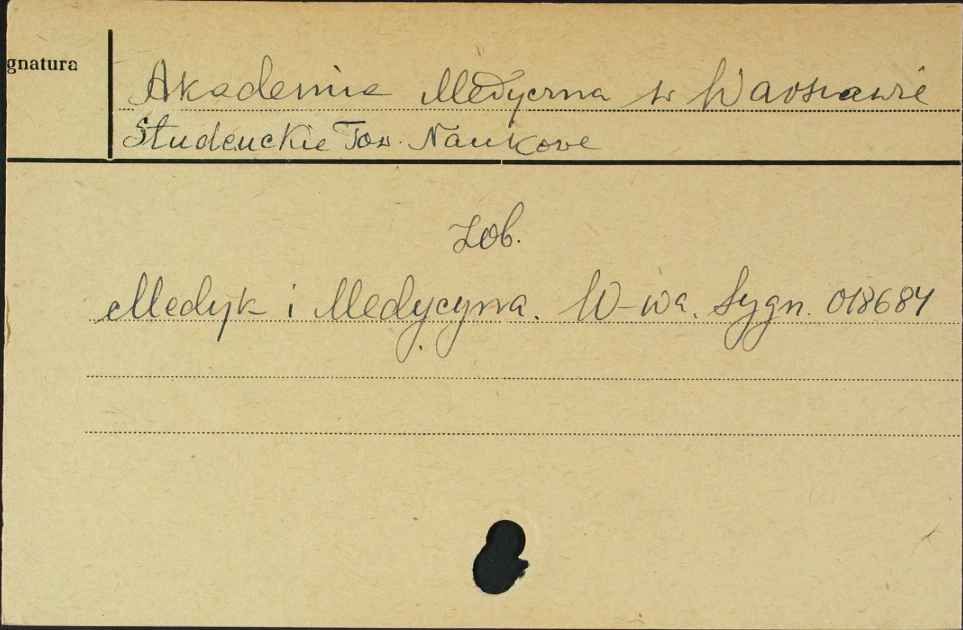 gnatura
Akademia Medyczna w Warszawie
Studenckie Tow. Naukowe
Zob.
Medyk i Medycyna. W-wa. Sygn. 018684